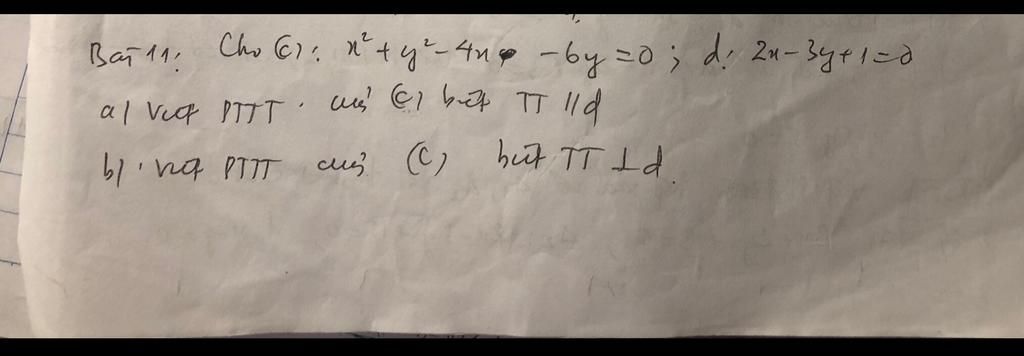 Bài 11: Cho (C): x² + y² - 4x - 6y = 0 ; d: 2x - 3y + 1 = 0
a) Viết PTTT của (C) biết TT // d
b) Viết PTTT của (C) biết TT ⊥ d.